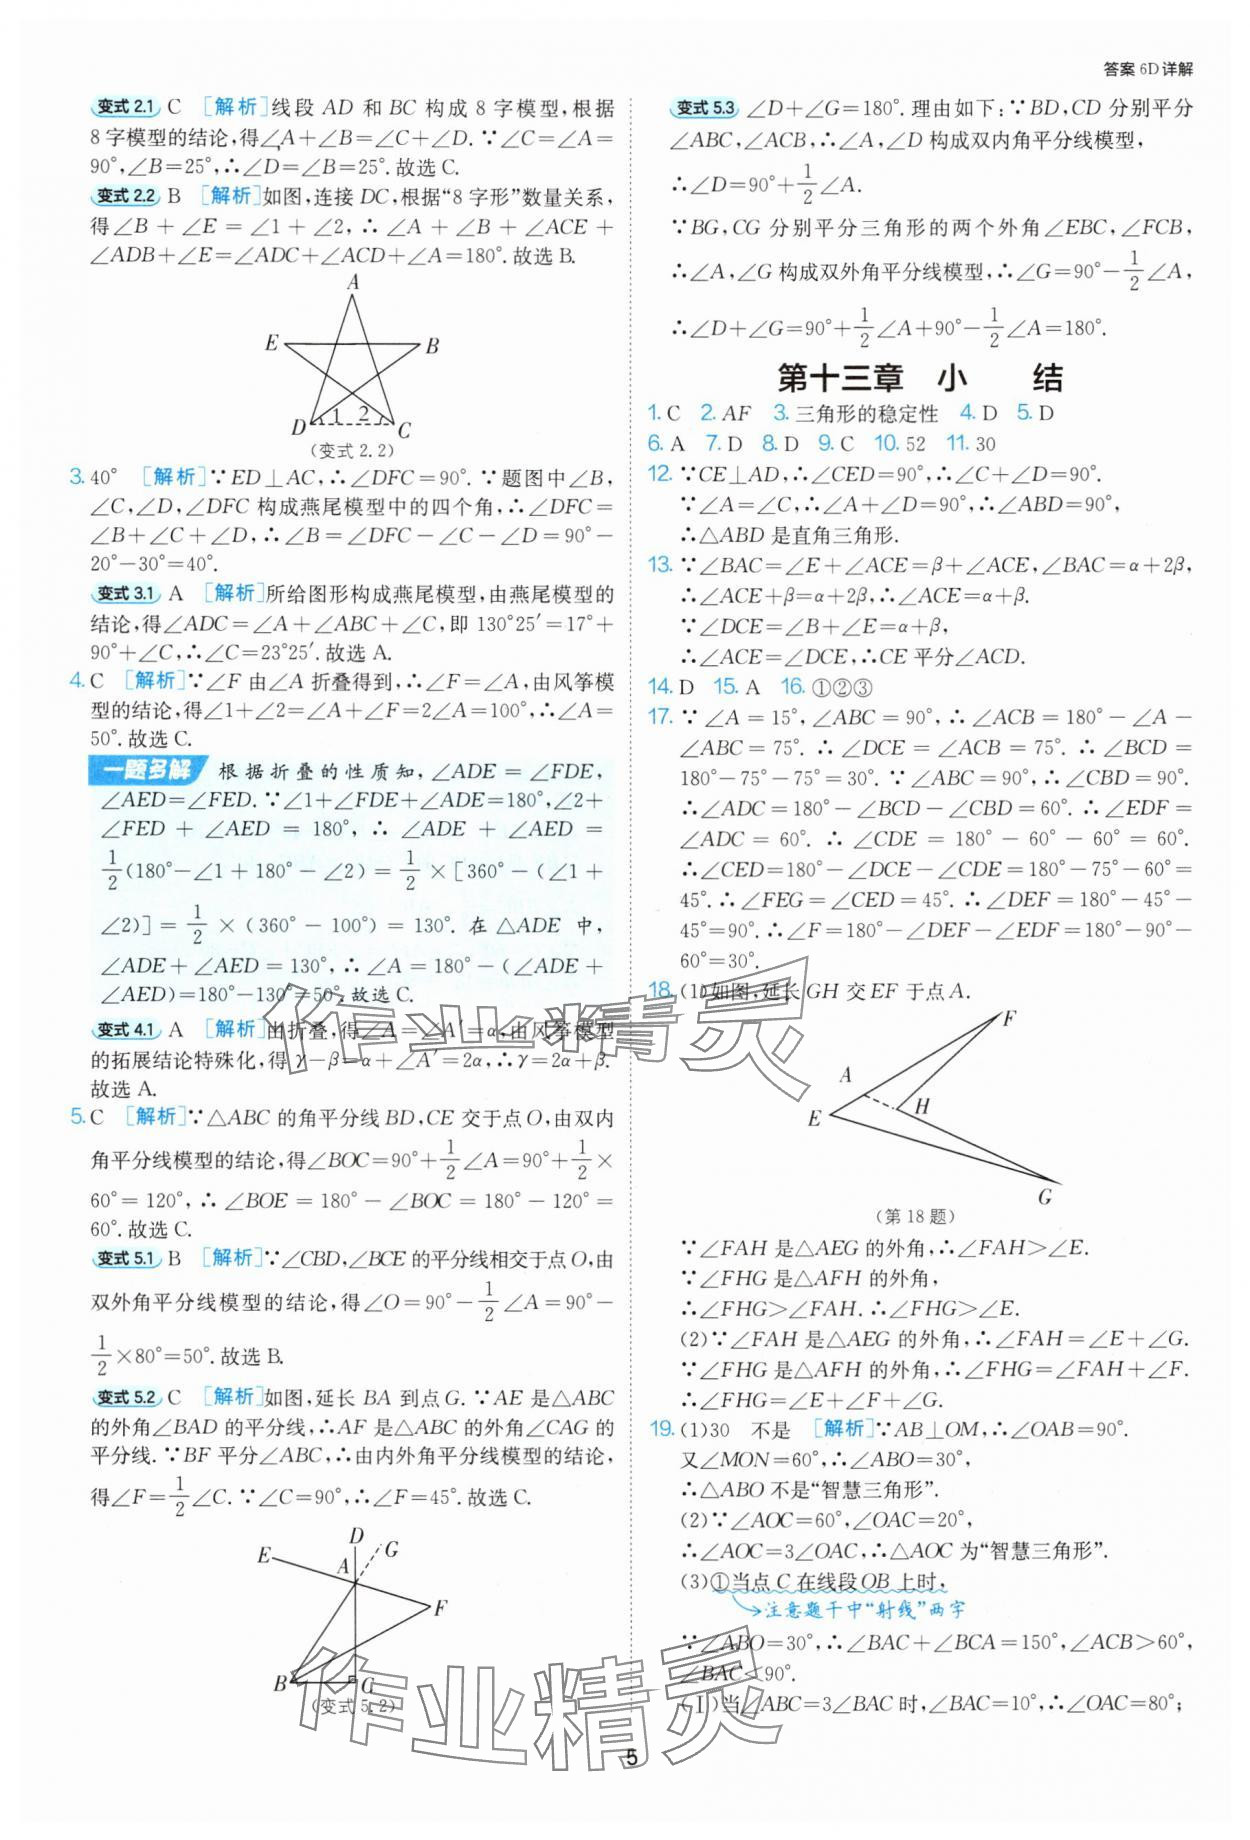 答案 6D详解
变式2.1 C [解析]线段 AD 和 BC 构成 8 字模型,根据
8 字模型的结论,得∠A+∠B=∠C+∠D.∵∠C=∠A=
90°,∠B=25°,∴∠D=∠B=25°.故选 C.
变式2.2 B [解析]如图,连接 DC,根据“8 字形”数量关系,
得∠B+∠E=∠1+∠2,∴∠A+∠B+∠ACE+
∠ADB+∠E=∠ADC+∠ACD+∠A=180°.故选 B.
A
E B
D 1 2 C
(变式 2.2)
3. 40° [解析]∵ED⊥AC,∴∠DFC=90°.∵题图中∠B,
∠C,∠D,∠DFC 构成燕尾模型中的四个角,∴∠DFC=
∠B+∠C+∠D,∴∠B=∠DFC-∠C-∠D=90°-
20°-30°=40°.
变式3.1 A [解析]所给图形构成燕尾模型,由燕尾模型的
结论,得∠ADC=∠A+∠ABC+∠C,即 130°25′=17°+
90°+∠C,∴∠C=23°25′.故选 A.
4. C [解析]∵∠F 由∠A 折叠得到,∴∠F=∠A,由风筝模
型的结论,得∠1+∠2=∠A+∠F=2∠A=100°,∴∠A=
50°.故选 C.
一题多解 根据折叠的性质知,∠ADE=∠FDE,
∠AED=∠FED.∵∠1+∠FDE+∠ADE=180°,∠2+
∠FED+∠AED=180°,∴∠ADE+∠AED=
1/2(180°-∠1+180°-∠2)=1/2×[360°-(∠1+
∠2)]=1/2×(360°-100°)=130°.在△ADE 中,
∠ADE+∠AED=130°,∴∠A=180°-(∠ADE+
∠AED)=180°-130°=50°.故选 C.
变式4.1 A [解析]由折叠,得∠A=∠A′=α,由风筝模型
的拓展结论特殊化,得 γ-β=α+∠A′=2α,∴γ=2α+β.
故选 A.
5. C [解析]∵△ABC 的角平分线 BD,CE 交于点 O,由双内
角平分线模型的结论,得∠BOC=90°+1/2∠A=90°+1/2×
60°=120°,∴∠BOE=180°-∠BOC=180°-120°=
60°.故选 C.
变式5.1 B [解析]∵∠CBD,∠BCE 的平分线相交于点 O,由
双外角平分线模型的结论,得∠O=90°-1/2∠A=90°-
1/2×80°=50°.故选 B.
变式5.2 C [解析]如图,延长 BA 到点 G.∵AE 是△ABC
的外角∠BAD 的平分线,∴AF 是△ABC 的外角∠CAG 的
平分线.∵BF 平分∠ABC,∴由内外角平分线模型的结论,
得∠F=1/2∠C.∵∠C=90°,∴∠F=45°.故选 C.
D
E A G
F
B C
(变式 5.2)
变式5.3 ∠D+∠G=180°.理由如下:∵BD,CD 分别平分
∠ABC,∠ACB,∴∠A,∠D 构成双内角平分线模型,
∴∠D=90°+1/2∠A.
∵BG,CG 分别平分三角形的两个外角∠EBC,∠FCB,
∴∠A,∠G 构成双外角平分线模型,∴∠G=90°-1/2∠A,
∴∠D+∠G=90°+1/2∠A+90°-1/2∠A=180°.
第十三章 小 结
1. C 2. AF 3. 三角形的稳定性 4. D 5. D
6. A 7. D 8. D 9. C 10. 52 11. 30
12. ∵CE⊥AD,∴∠CED=90°,∴∠C+∠D=90°.
∵∠A=∠C,∴∠A+∠D=90°,∴∠ABD=90°,
∴△ABD 是直角三角形.
13. ∵∠BAC=∠E+∠ACE=β+∠ACE,∠BAC=α+2β,
∴∠ACE+β=α+2β,∴∠ACE=α+β.
∵∠DCE=∠B+∠E=α+β,
∴∠ACE=∠DCE,∴CE 平分∠ACD.
14. D 15. A 16. ①②③
17. ∵∠A=15°,∠ABC=90°,∴∠ACB=180°-∠A-
∠ABC=75°.∴∠DCE=∠ACB=75°.∴∠BCD=
180°-75°-75°=30°.∵∠ABC=90°,∴∠CBD=90°.
∴∠ADC=180°-∠BCD-∠CBD=60°.∴∠EDF=
∠ADC=60°.∴∠CDE=180°-60°-60°=60°.
∴∠CED=180°-∠DCE-∠CDE=180°-75°-60°=
45°.∴∠FEG=∠CED=45°.∴∠DEF=180°-45°-
45°=90°.∴∠F=180°-∠DEF-∠EDF=180°-90°-
60°=30°.
18. (1)如图,延长 GH 交 EF 于点 A.
F
A
H
E
G
(第 18 题)
∵∠FAH 是△AEG 的外角,∴∠FAH>∠E.
∵∠FHG 是△AFH 的外角,
∴∠FHG>∠FAH.∴∠FHG>∠E.
(2)∵∠FAH 是△AEG 的外角,∴∠FAH=∠E+∠G.
∵∠FHG 是△AFH 的外角,∴∠FHG=∠FAH+∠F.
∴∠FHG=∠E+∠F+∠G.
19. (1)30 不是 [解析]∵AB⊥OM,∴∠OAB=90°.
又∠MON=60°,∴∠ABO=30°,
∴△ABO 不是“智慧三角形”.
(2)∵∠AOC=60°,∠OAC=20°,
∴∠AOC=3∠OAC,∴△AOC 为“智慧三角形”.
(3)①当点 C 在线段 OB 上时,
注意题干中“射线”两字
∵∠ABO=30°,∴∠BAC+∠BCA=150°,∠ACB>60°,
∠BAC<90°.
(Ⅰ)当∠ABC=3∠BAC 时,∠BAC=10°,∴∠OAC=80°;
作业精灵
作业精灵
5